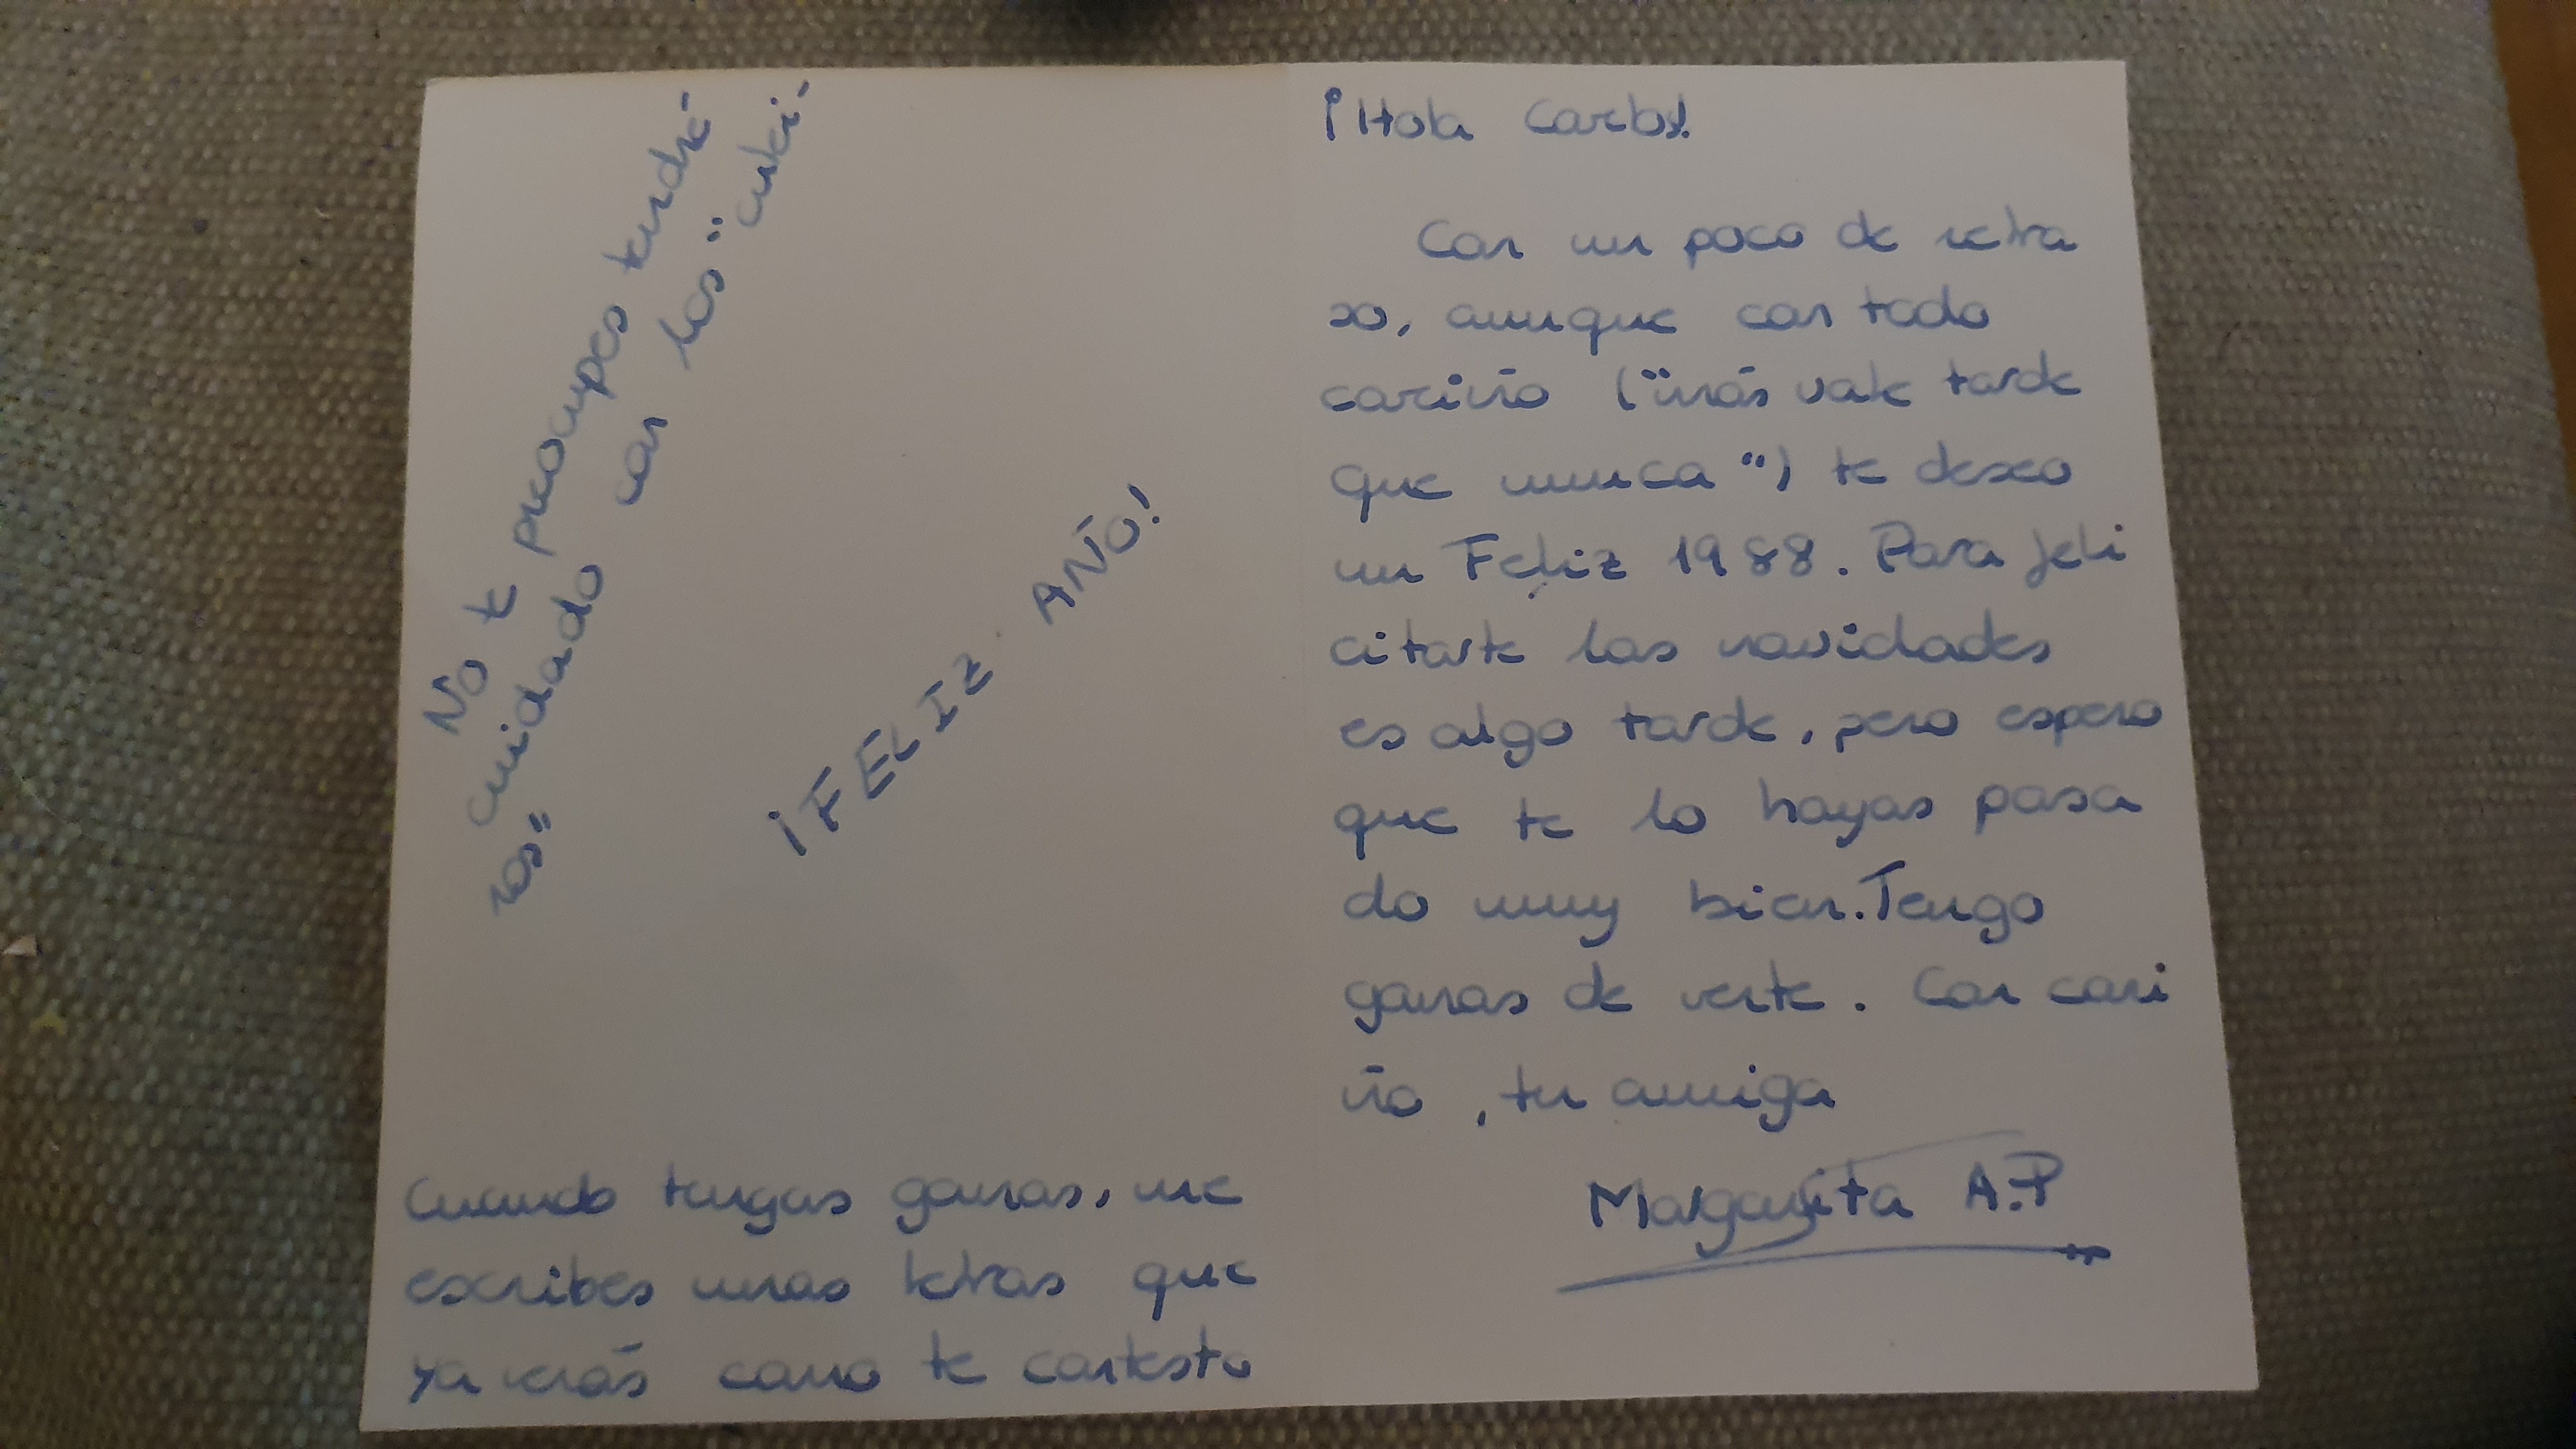 No te preocupes tendré
cuidado con los
¡FELIZ AÑO!
Cuando tengas ganas, me
escribes unas letras que
ya verás como te contesto
¡Hola Carlos!
Con un poco de retra
so, aunque con todo
cariño ("más vale tarde
que nunca") te deseo
un Feliz 1988. Para feli
citarte las navidades
es algo tarde, pero espero
que te lo hayas pasa
do muy bien. Tengo
ganas de verte. Con cari
ño, tu amiga
Margarita A.P